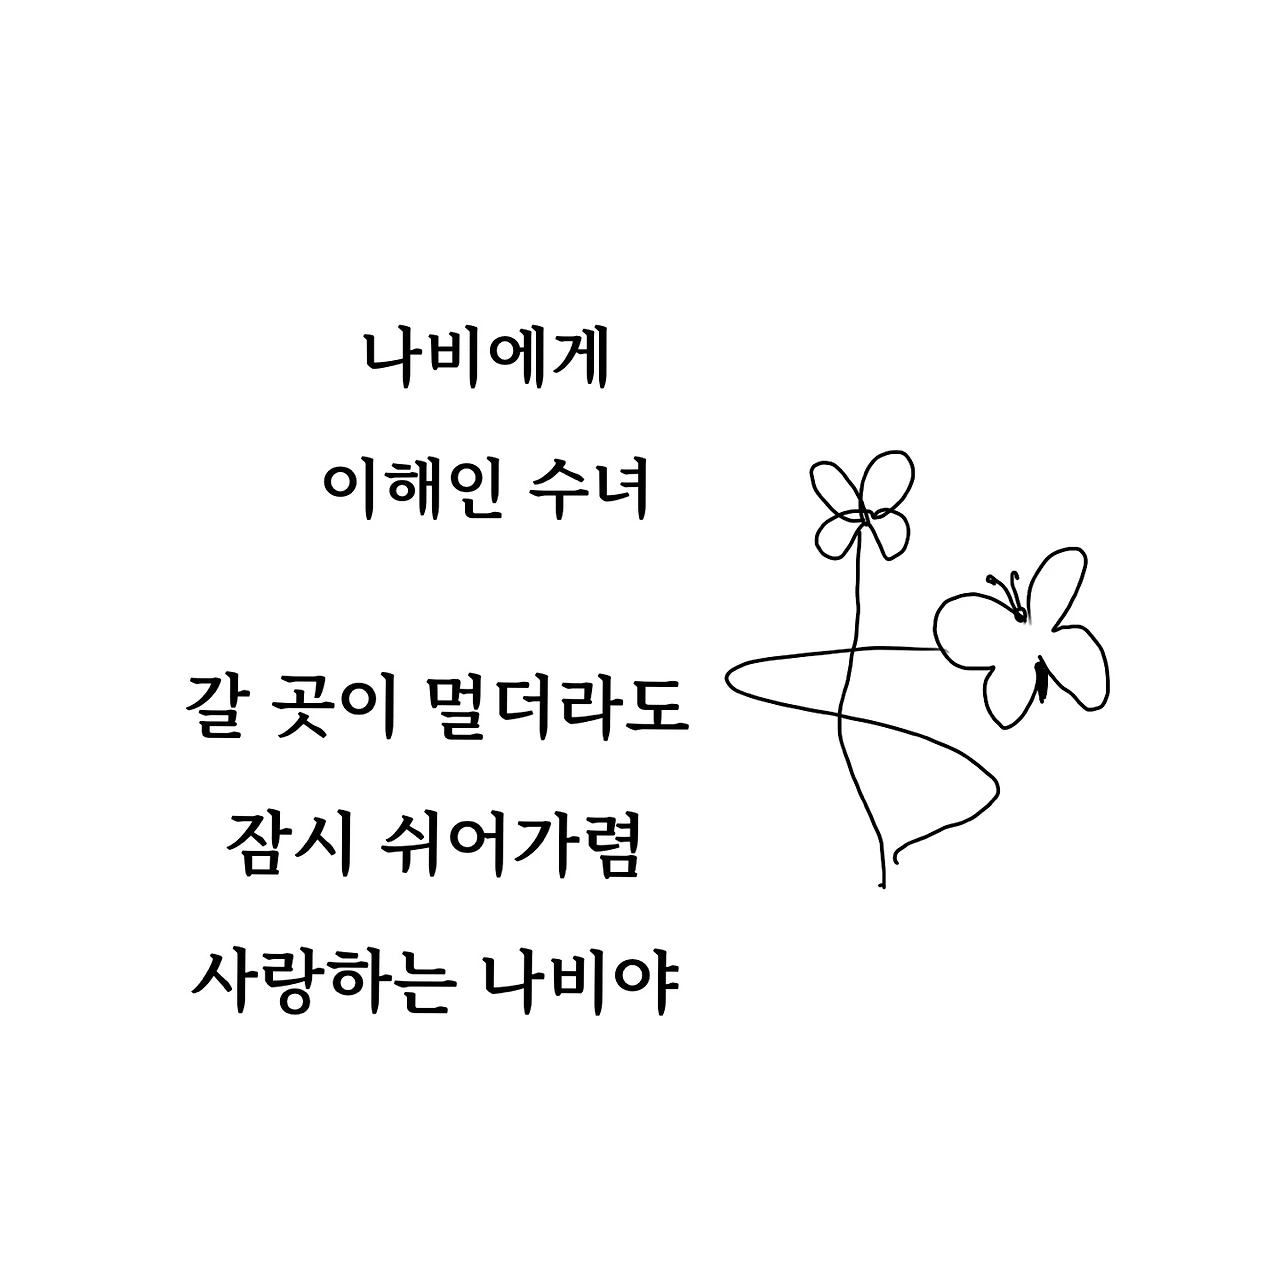 나비에게
이해인 수녀
갈 곳이 멀더라도
잠시 쉬어가렴
사랑하는 나비야